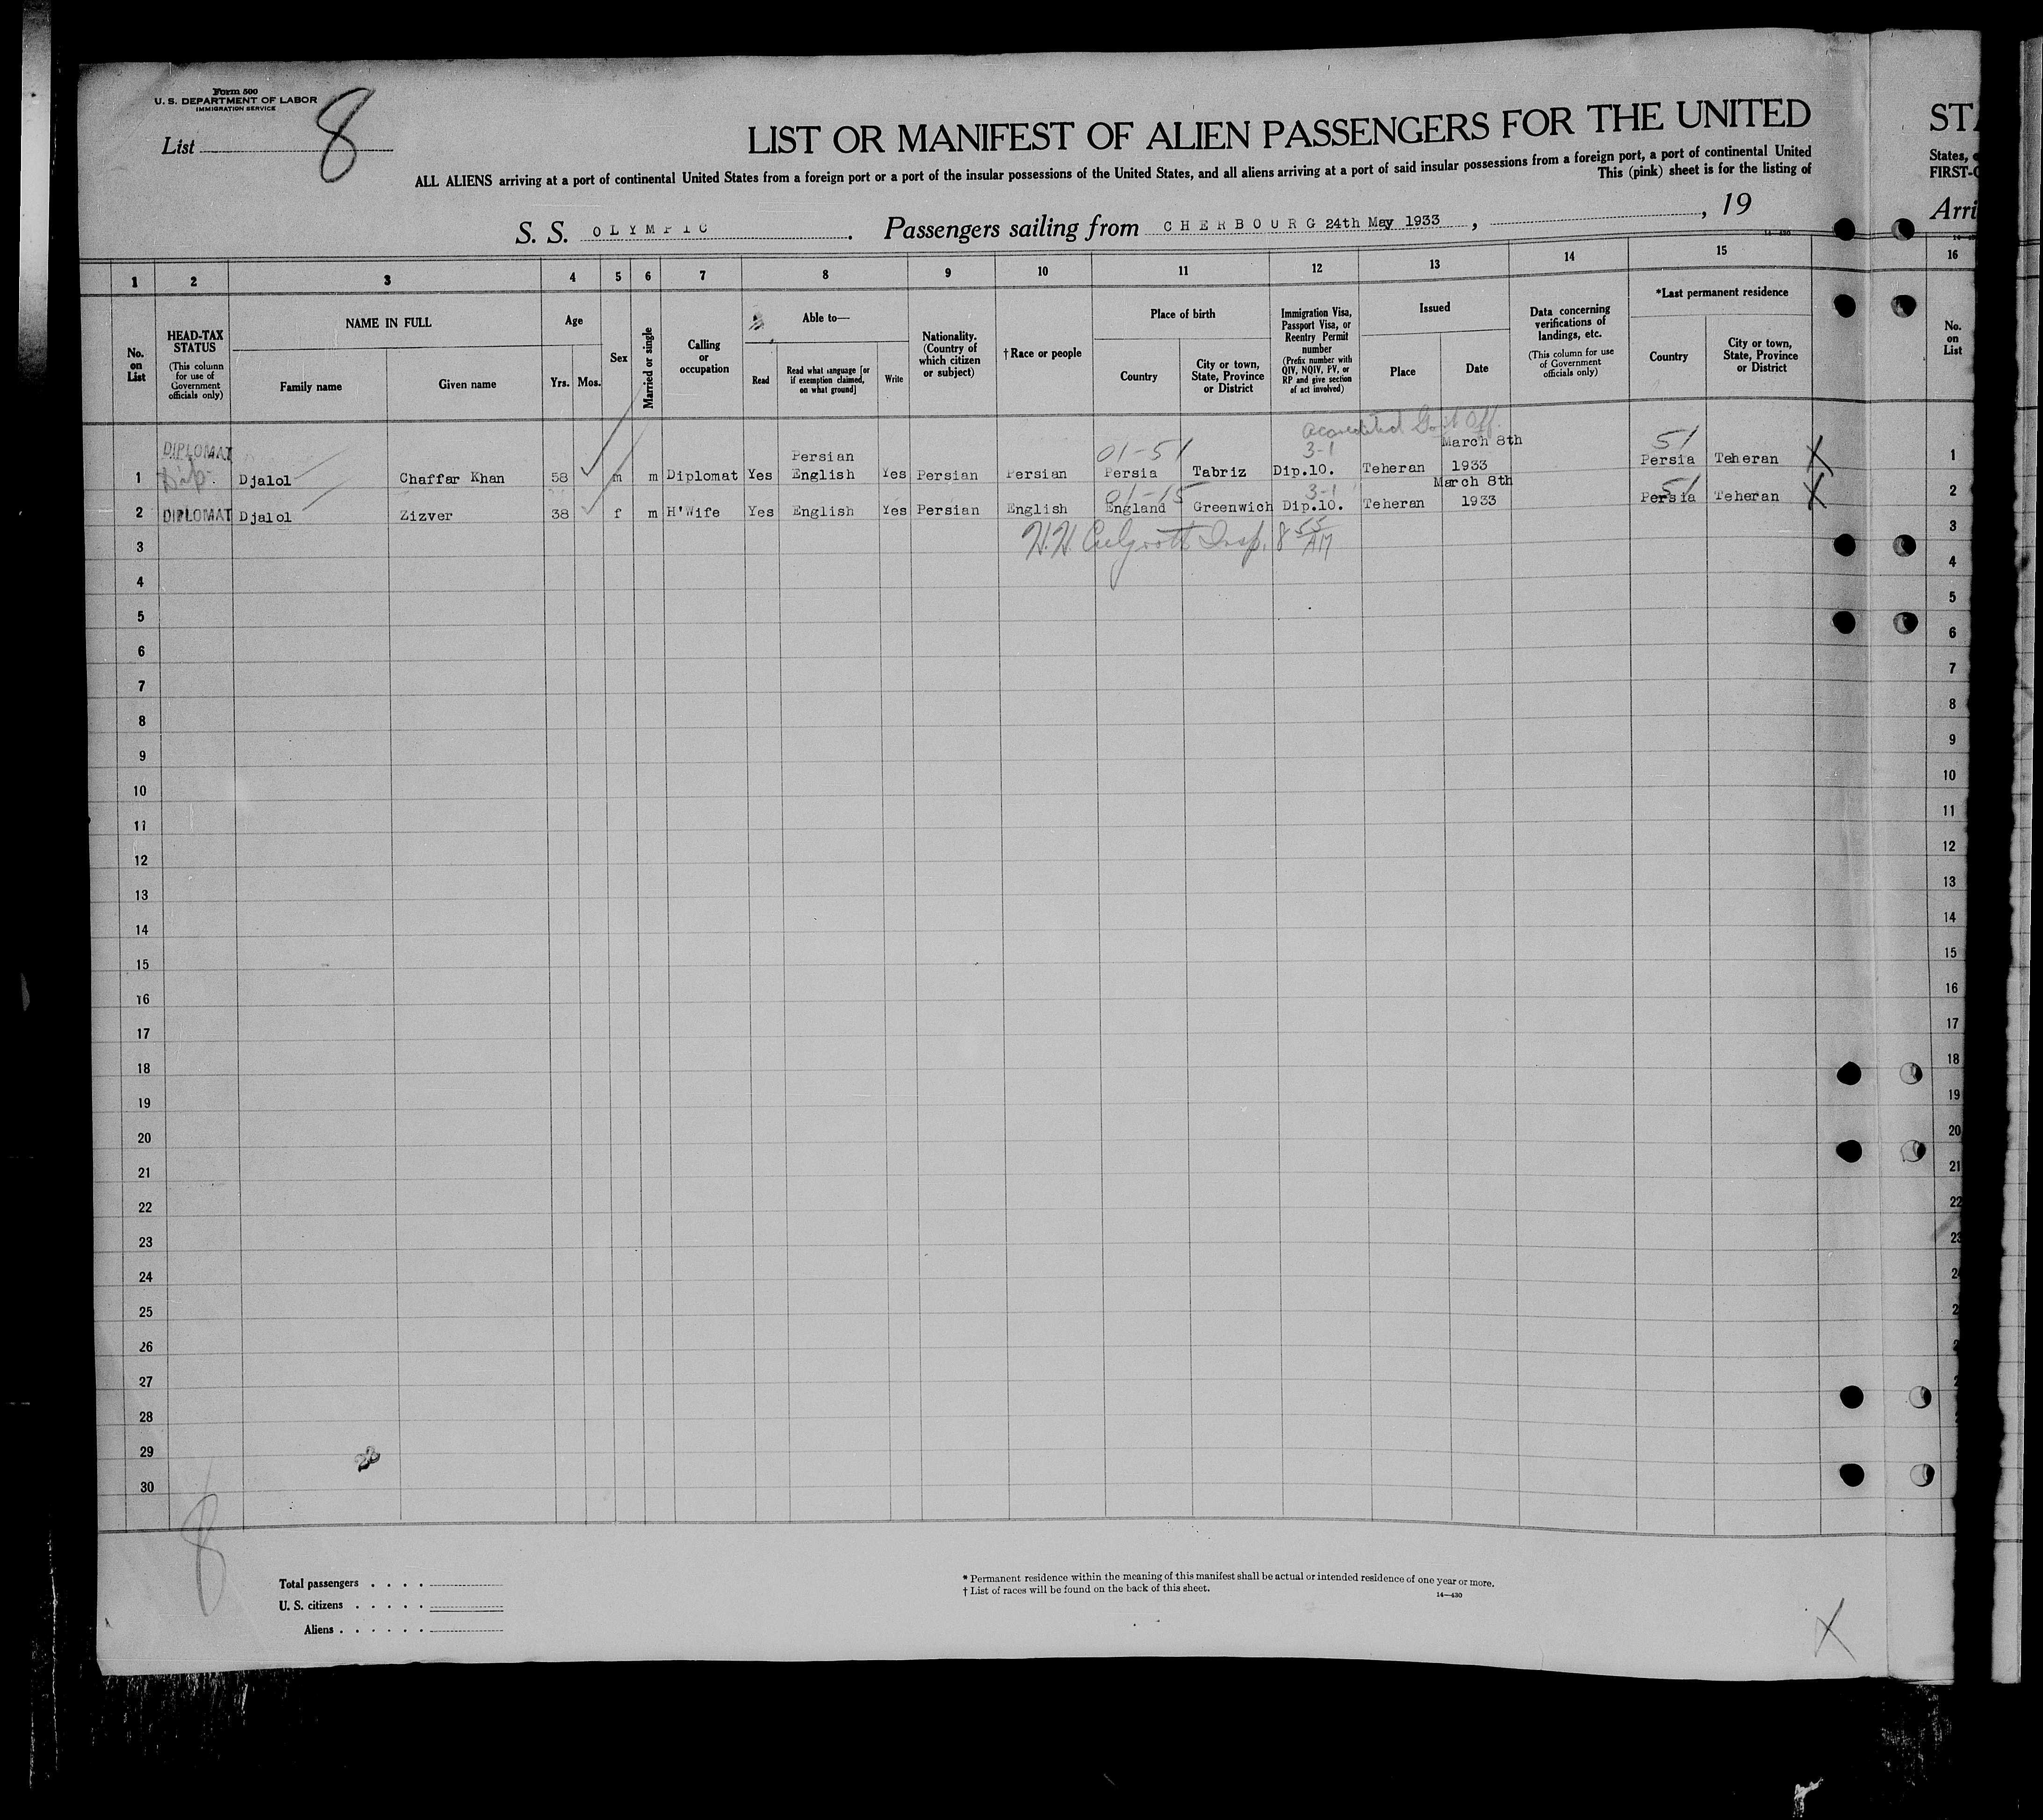 Form 500
U. S. DEPARTMENT OF LABOR
IMMIGRATION SERVICE
List 8
LIST OR MANIFEST OF ALIEN PASSENGERS FOR THE UNITED
STA
ALL ALIENS arriving at a port of continental United States from a foreign port or a port of the insular possessions of the United States, and all aliens arriving at a port of said insular possessions from a foreign port, a port of continental United
States,
This (pink) sheet is for the listing of
FIRST-C
S. S. OLYMPIC. Passengers sailing from CHERBOURG 24th May 1933, , 19
Arri
1 2 3 4 5 6 7 8 9 10 11 12 13 14 15 16
No. on List
HEAD-TAX STATUS
(This column for use of Government officials only)
NAME IN FULL
Family name
Given name
Age
Yrs. Mos.
Sex
Married or single
Calling or occupation
Able to—
Read
Read what language [or if exemption claimed, on what ground]
Write
Nationality. (Country of which citizen or subject)
†Race or people
Place of birth
Country
City or town, State, Province or District
Immigration Visa, Passport Visa, or Reentry Permit number
(Prefix number with QIV, NQIV, PV, or RP and give section of act involved)
Issued
Place
Date
Data concerning verifications of landings, etc.
(This column for use of Government officials only)
*Last permanent residence
Country
City or town, State, Province or District
No. on List
Accredited Gov't Off.
DIPLOMAT Persian 01-51 3-1 March 8th 51
1 Dip. Djalol Chaffar Khan 58 m m Diplomat Yes English Yes Persian Persian Persia Tabriz Dip.10. Teheran 1933 Persia Teheran X 1
01-15 3-1 March 8th 51
2 DIPLOMAT Djalol Zizver 38 f m H'Wife Yes English Yes Persian English England Greenwich Dip.10. Teheran 1933 Persia Teheran X 2
3 H.H. Insp. 8 55 AM 3
4 4
5 5
6 6
7 7
8 8
9 9
10 10
11 11
12 12
13 13
14 14
15 15
16 16
17 17
18 18
19 19
20 20
21 21
22 22
23 23
24 2
25 2
26 2
27 2
28
29
30
8
Total passengers . . . .
U. S. citizens . . . . .
Aliens . . . . . .
* Permanent residence within the meaning of this manifest shall be actual or intended residence of one year or more.
† List of races will be found on the back of this sheet.
14—430
X